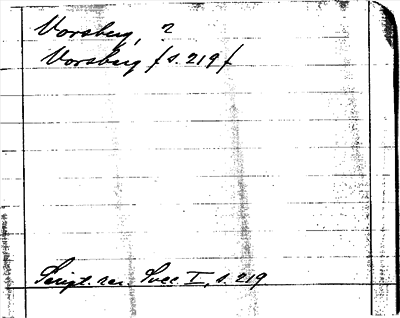 Vorsberg, ?
Vorsberg / s. 219 /
Script. rer. Svec I, s. 219